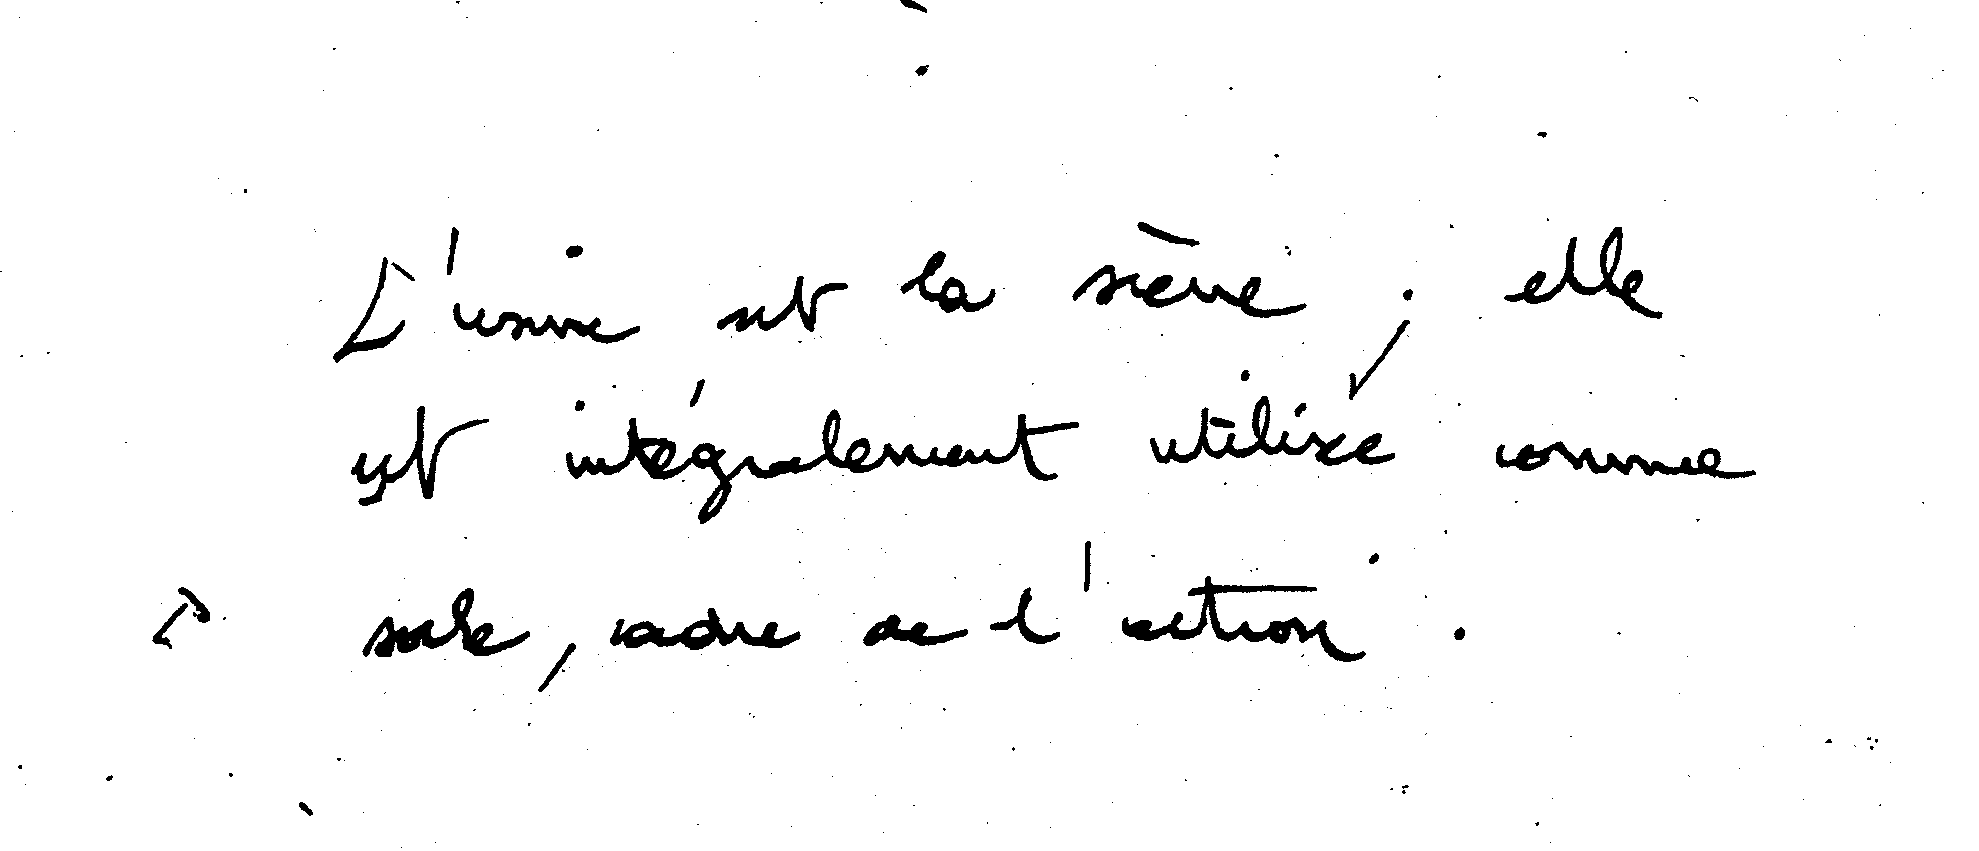 L'usine est la scène ; elle
est intégralement utilisé comme
socle, cadre de l'action.